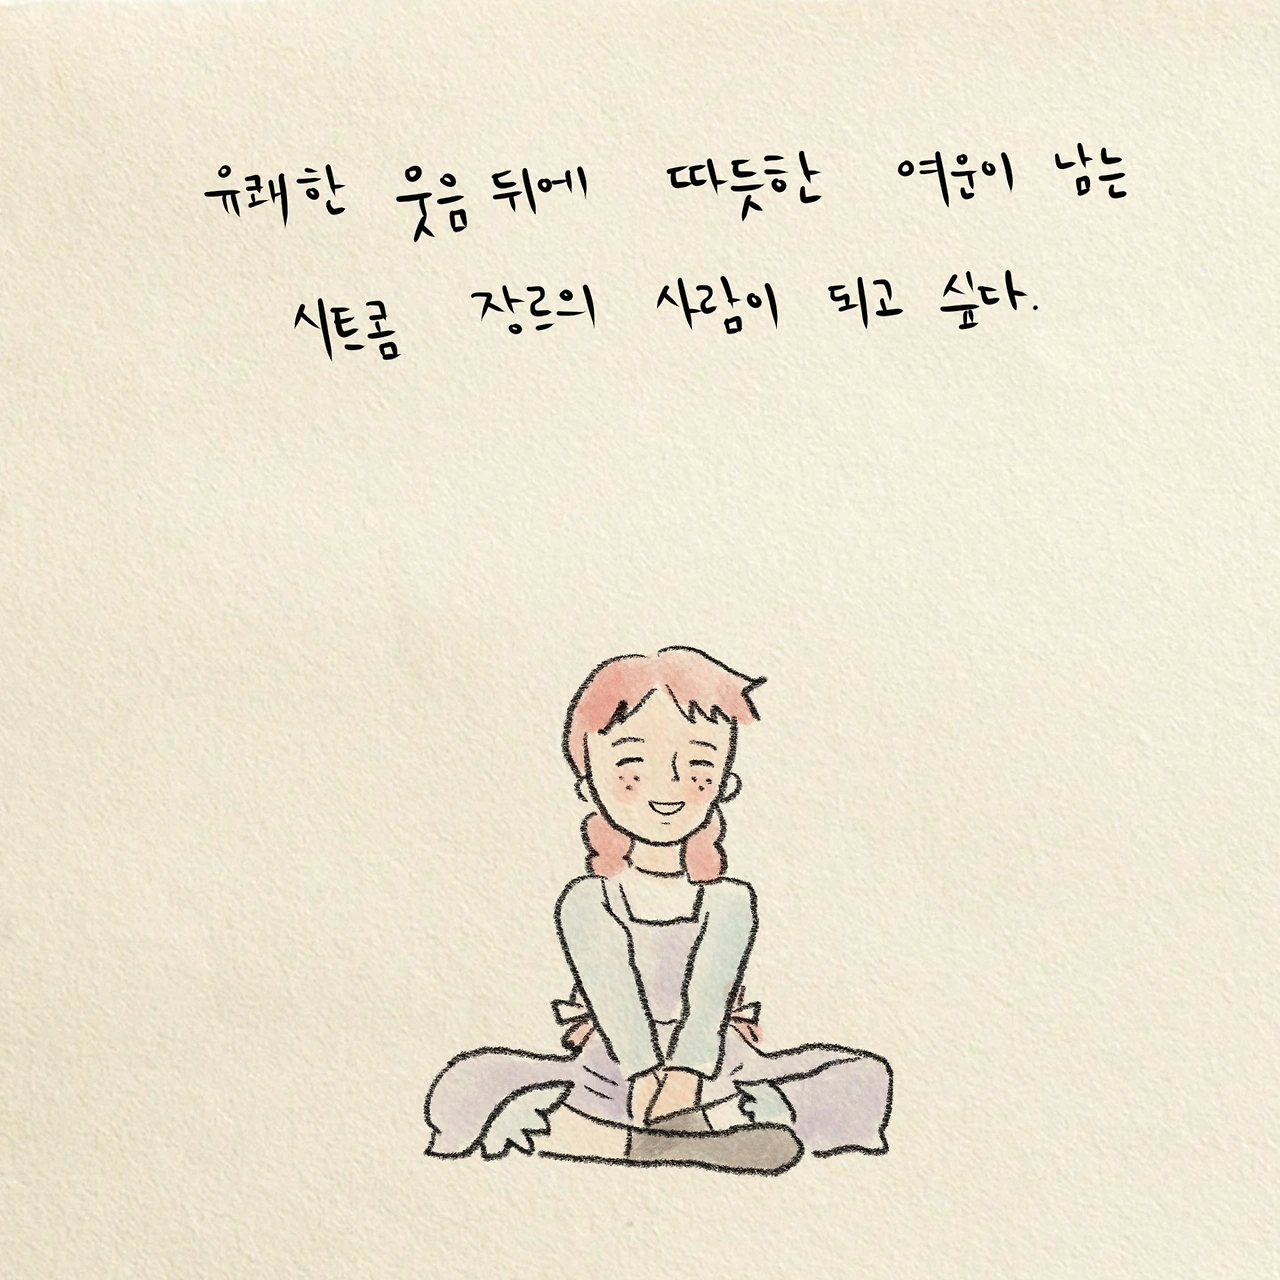 유쾌한 웃음 뒤에 따듯한 여운이 남는
시트콤 장르의 사람이 되고 싶다.